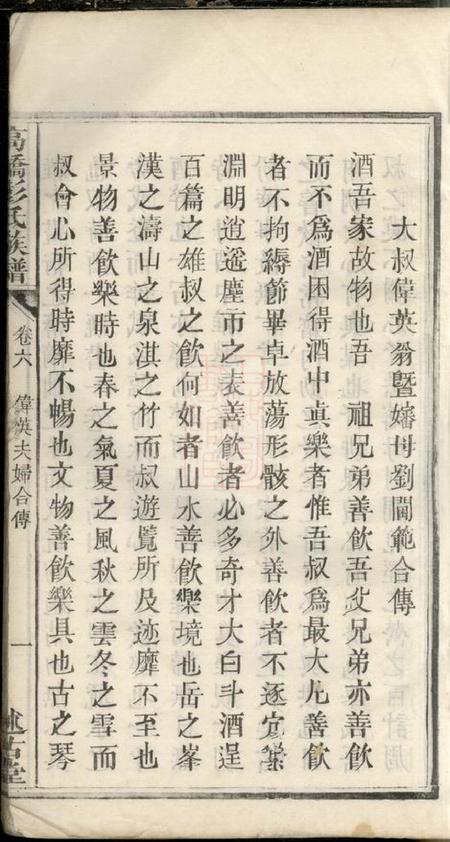 大叔偉英翁曁嬸母劉閫範合傳
酒吾家故物也吾　祖兄弟善飲吾父兄弟亦善飲
而不爲酒困得酒中眞樂者惟吾叔爲最大凢善飲
者不拘縟節畢卓放蕩形骸之外善飲者不逐宂業
淵明逍遥塵市之表善飲者必多奇才大白斗酒逞
百篇之雄叔之飲何如者山水善飲樂境也岳之峯
漢之濤山之泉淇之竹而叔遊覧所及迹靡不至也
景物善飲樂時也春之氣夏之風秋之雲冬之雪而
叔會心所得時靡不暢也文物善飲樂具也古之琴
高橋彭氏族譜
卷六　偉英夫婦合傳
一
述古堂